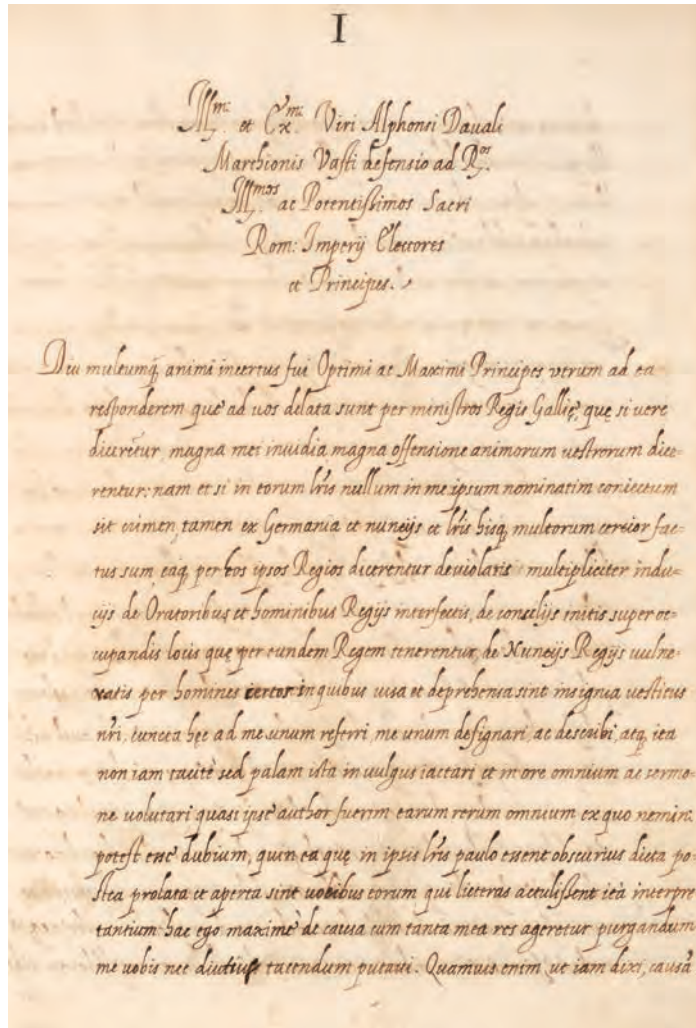 I
Ill.^mi et Ex.^mi Viri Alphonsi Davali
Marchionis Vasti defensio ad R.^os
Ill.^mos ac Potentissimos Sacri
Rom: Imperij Electores
et Principes.
Diu multumq; animi incertus fui Optimi ac Maximi Principes utrum ad ea
responderem quę ad uos delata sunt per ministros Regis Gallię, quę si uere
dicerẽtur, magna mei inuidia magna offensione animorum uestrorum dice=
rentur: nam et si in eorum lr̃is nullum in me ipsum nominatim coniectum
sit crimen, tamen ex Germania et nuncijs et lr̃is hisq; multorum certior fac=
tus sum eaq; per hos ipsos Regios dicerentur de uiolatis multipliciter indu=
cijs de Oratoribus et hominibus Regijs interfectis, de consilijs initis super oc=
cupandis locis quę per eundem Regem tenerentur, de Nuncijs Regijs uulne=
ratis per homines certos in quibus uisa et deprehensa sint insignia uestitus
nr̃i, cuncta hęc ad me unum referri, me unum designari, ac describi, atq; ita
non iam tacitè sed palam ista in uulgus iactari et in ore omnium ac sermo=
ne uolutari quasi ipse author fuerim earum rerum omnium ex quo nemini
potest esse dubium, quin ea quę in ipsis lr̃is paulo essent obscurius dicta po=
stea prolata et aperta sint uocibus eorum qui litteras attulissent ita interpre
tantium hac ego maximè de causa cum tanta mea res ageretur purgandum
me uobis nec diutius tacendum putaui. Quamuis enim, ut iam dixi, causã